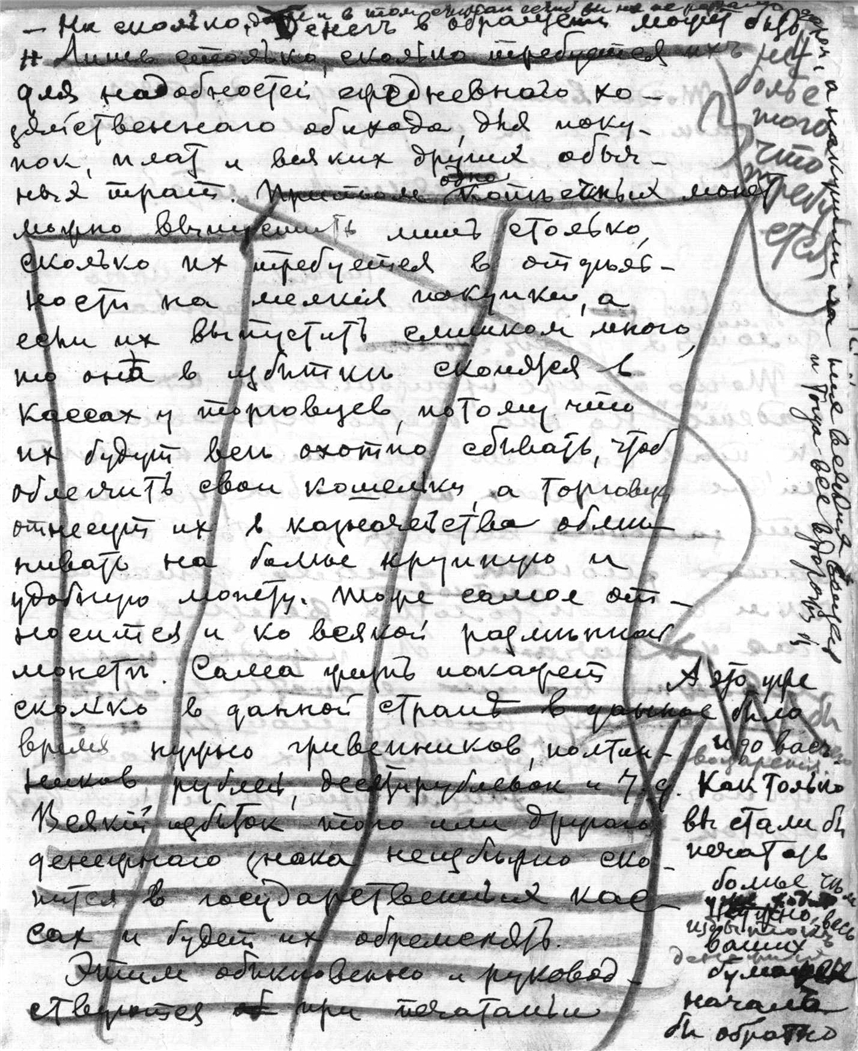 – Ни сколько, Денегъ в обращении может быть
Лишь столько, сколько требуется ихъ
для надобностей ежедневного хо-
зяйственного обихода, для поку-
пок, плат и всяких других обыч-
ных трат.
можно выпустить лишь столько,
сколько их требуется в отдель-
ности на мелкия покупки, а
если их выпустить слишком много,
то она в избытки скопятся в
кассах у торговцев, потому что
их будут все охотно сбывать, чтоб
облегчить свои кошельки, а торговцы
отнесут их в казначейства обме-
нивать на более крупную и
удобную монету. Тоже самое от-
носится и ко всякой разменной
монеты. Сама жизнь покажет
сколько в данной странѣ в данное
время нужно гривенников, полтин-
ников рублей, десятирублевок и т. д.
Всякий избыток того или другого
денежного знака неизбежно ско-
пится в государственных кас-
сах и будет их обременять.
Этим обыкновенно и руковод-
ствуются при печатаньи
не
более
того
что
требу
ется
и тогда все
А это уже
было
и до ваше
воцарения
Как только
вы стали бы
печатать
больше чѣм
нужно, весь
избыток
ваших
денежных
бумажек
начал
бы обратно